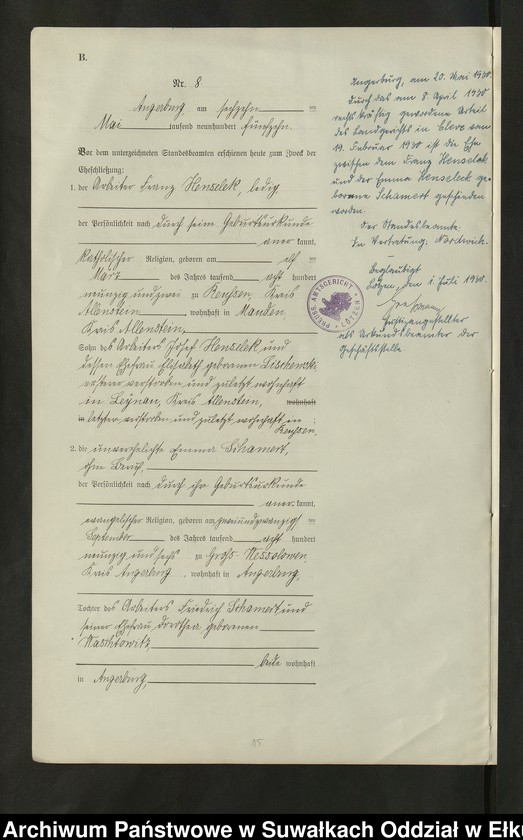 B.
Nr. 8
Angerburg, am sechzehn ten
Mai tausend neunhundert fünfzehn.
Vor dem unterzeichneten Standesbeamten erschienen heute zum Zweck der
Eheschließung:
1. der Arbeiter Franz Henselek, ledig,
der Persönlichkeit nach durch seine Geburtsurkunde
aner kannt,
katholischer Religion, geboren am elf ten
März des Jahres tausend acht hundert
neunzig und zwei zu Reussen, Kreis
Allenstein, wohnhaft in Mauden,
Kreis Allenstein,
Sohn des Arbeiters Josef Henselek und
dessen Ehefrau Elisabeth geborenen
ersterer verstorben und zuletzt wohnhaft
in Leynau, Kreis Allenstein, wohnhaft
in letztere verstorben und zuletzt wohnhaft in
Reussen.
2. die unverehelichte Emma Schamert,
ohne Beruf,
der Persönlichkeit nach durch ihre Geburtsurkunde
aner kannt,
evangelischer Religion, geboren am zweiundzwanzigs ten
September des Jahres tausend acht hundert
neunzig und sechs zu Groß-Wessolowen,
Kreis Angerburg, wohnhaft in Angerburg,
Tochter des Arbeiters Friedrich Schamert und
seiner Ehefrau Dorothea geborenen
beide wohnhaft
in Angerburg,
Angerburg, am 20. Mai 1930.
Durch das am 8. April 1930
rechtskräftig gewordene Urteil
des Landgerichts in Cleve vom
19. Februar 1930 ist die Ehe
zwischen dem Franz Henselek
und der Emma Henseleck ge-
borene Schamert geschieden
worden.
Der Standesbeamte.
In Vertretung: Nordwich.
Beglaubigt
Lötzen, den 1 Juli 1930.
Justizangestellter
als Urkundsbeamter der
Geschäftsstelle
PREUSS. AMTSGERICHT LÖTZEN
15
Archiwum Państwowe w Suwałkach Oddział w Ełku